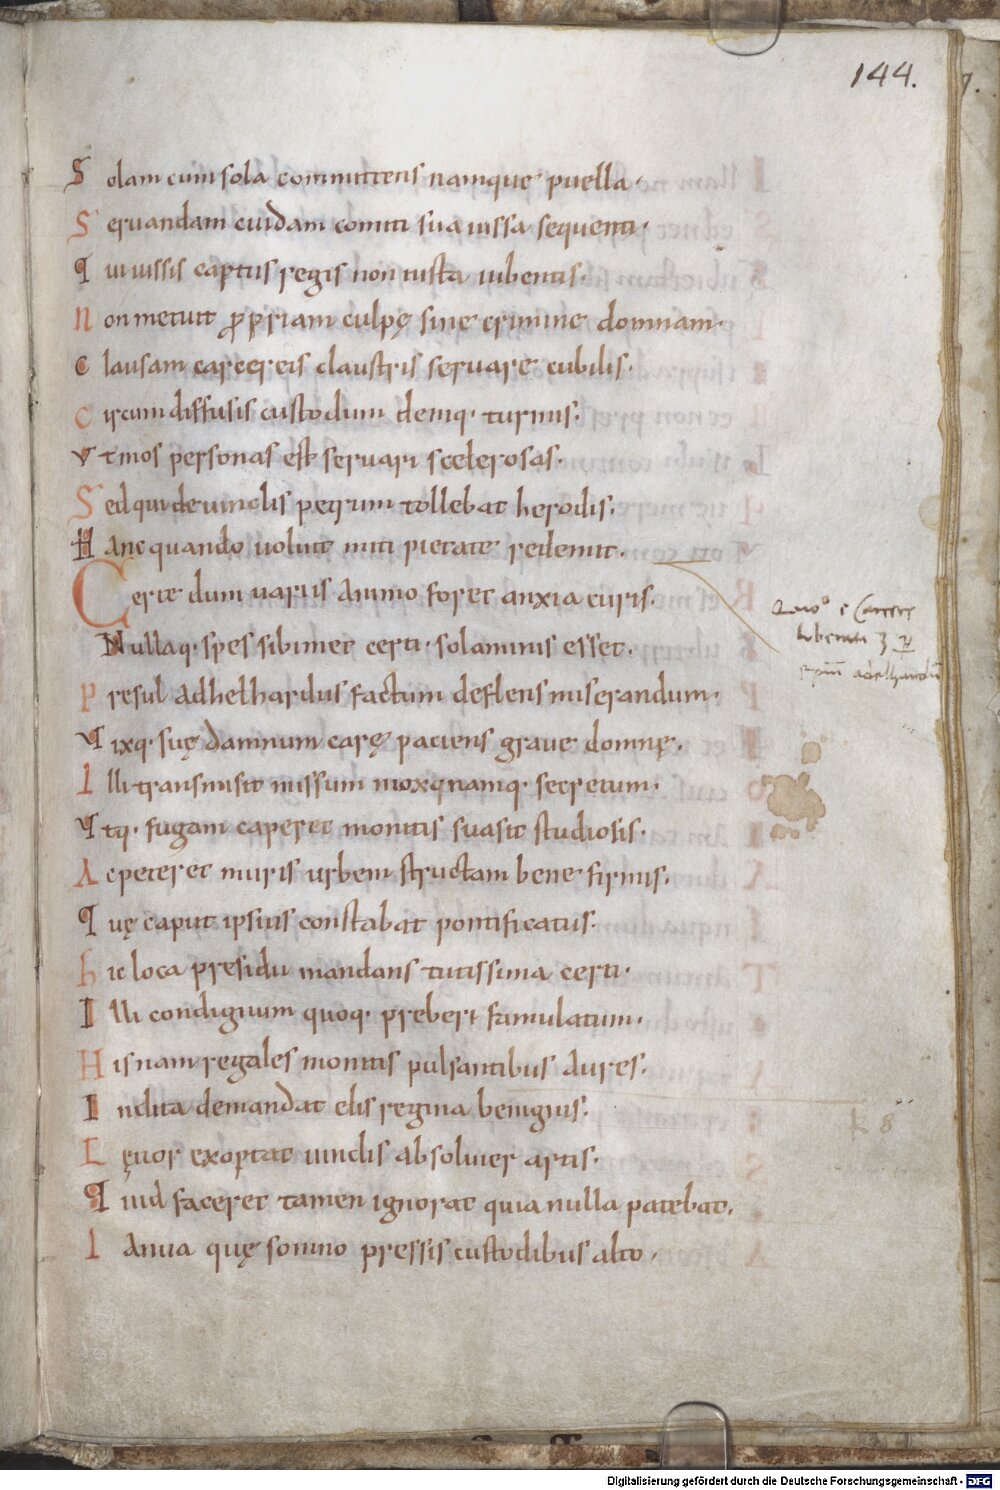 144.
Solam cum sola committens namque puella·
Seruandam cuidam comiti sua iussa sequenti·
Qui iussis captus regis non iusta iubentis·
Non metuit ppriam culpę sine crimine domnam·
Clausam carcereis claustris seruare cubilis·
Circumdiffusis custodum denıq· turmis·
Vt mos personas est seruari scelerosas·
Sed qui de uinclis petrum tollebat herodis·
Hanc quando uoluit miti pietate redemit·
Certe dum uariis animo foret anxia curis·
Nullaq· spes sibimet certi· solaminis esset·
Presul adhelhardus factum deflens miserandum·
Vixq· suę damnum carę paciens graue domnę·
Illi transmisit missum mox qnamq· secretum·
Vtq· fugam caperet monitis suasit studiosis·
Ac peteret muris urbem structam bene firmis·
Quę caput ipsius constabat pontificatus·
hic loca presidii mandans tutissima certi·
Illi condignum quoq· preberi famulatum·
His nam regales monitis pulsantibus aures·
Indita demandat elis regina benignis·
Lęuor exoptat uinclis absoluier artis·
Quid faceret tamen ignorat quia nulla patebat·
Ianua quę somno pressis custodibus alto·
Digitalisierung gefördert durch die Deutsche Forschungsgemeinschaft - DFG